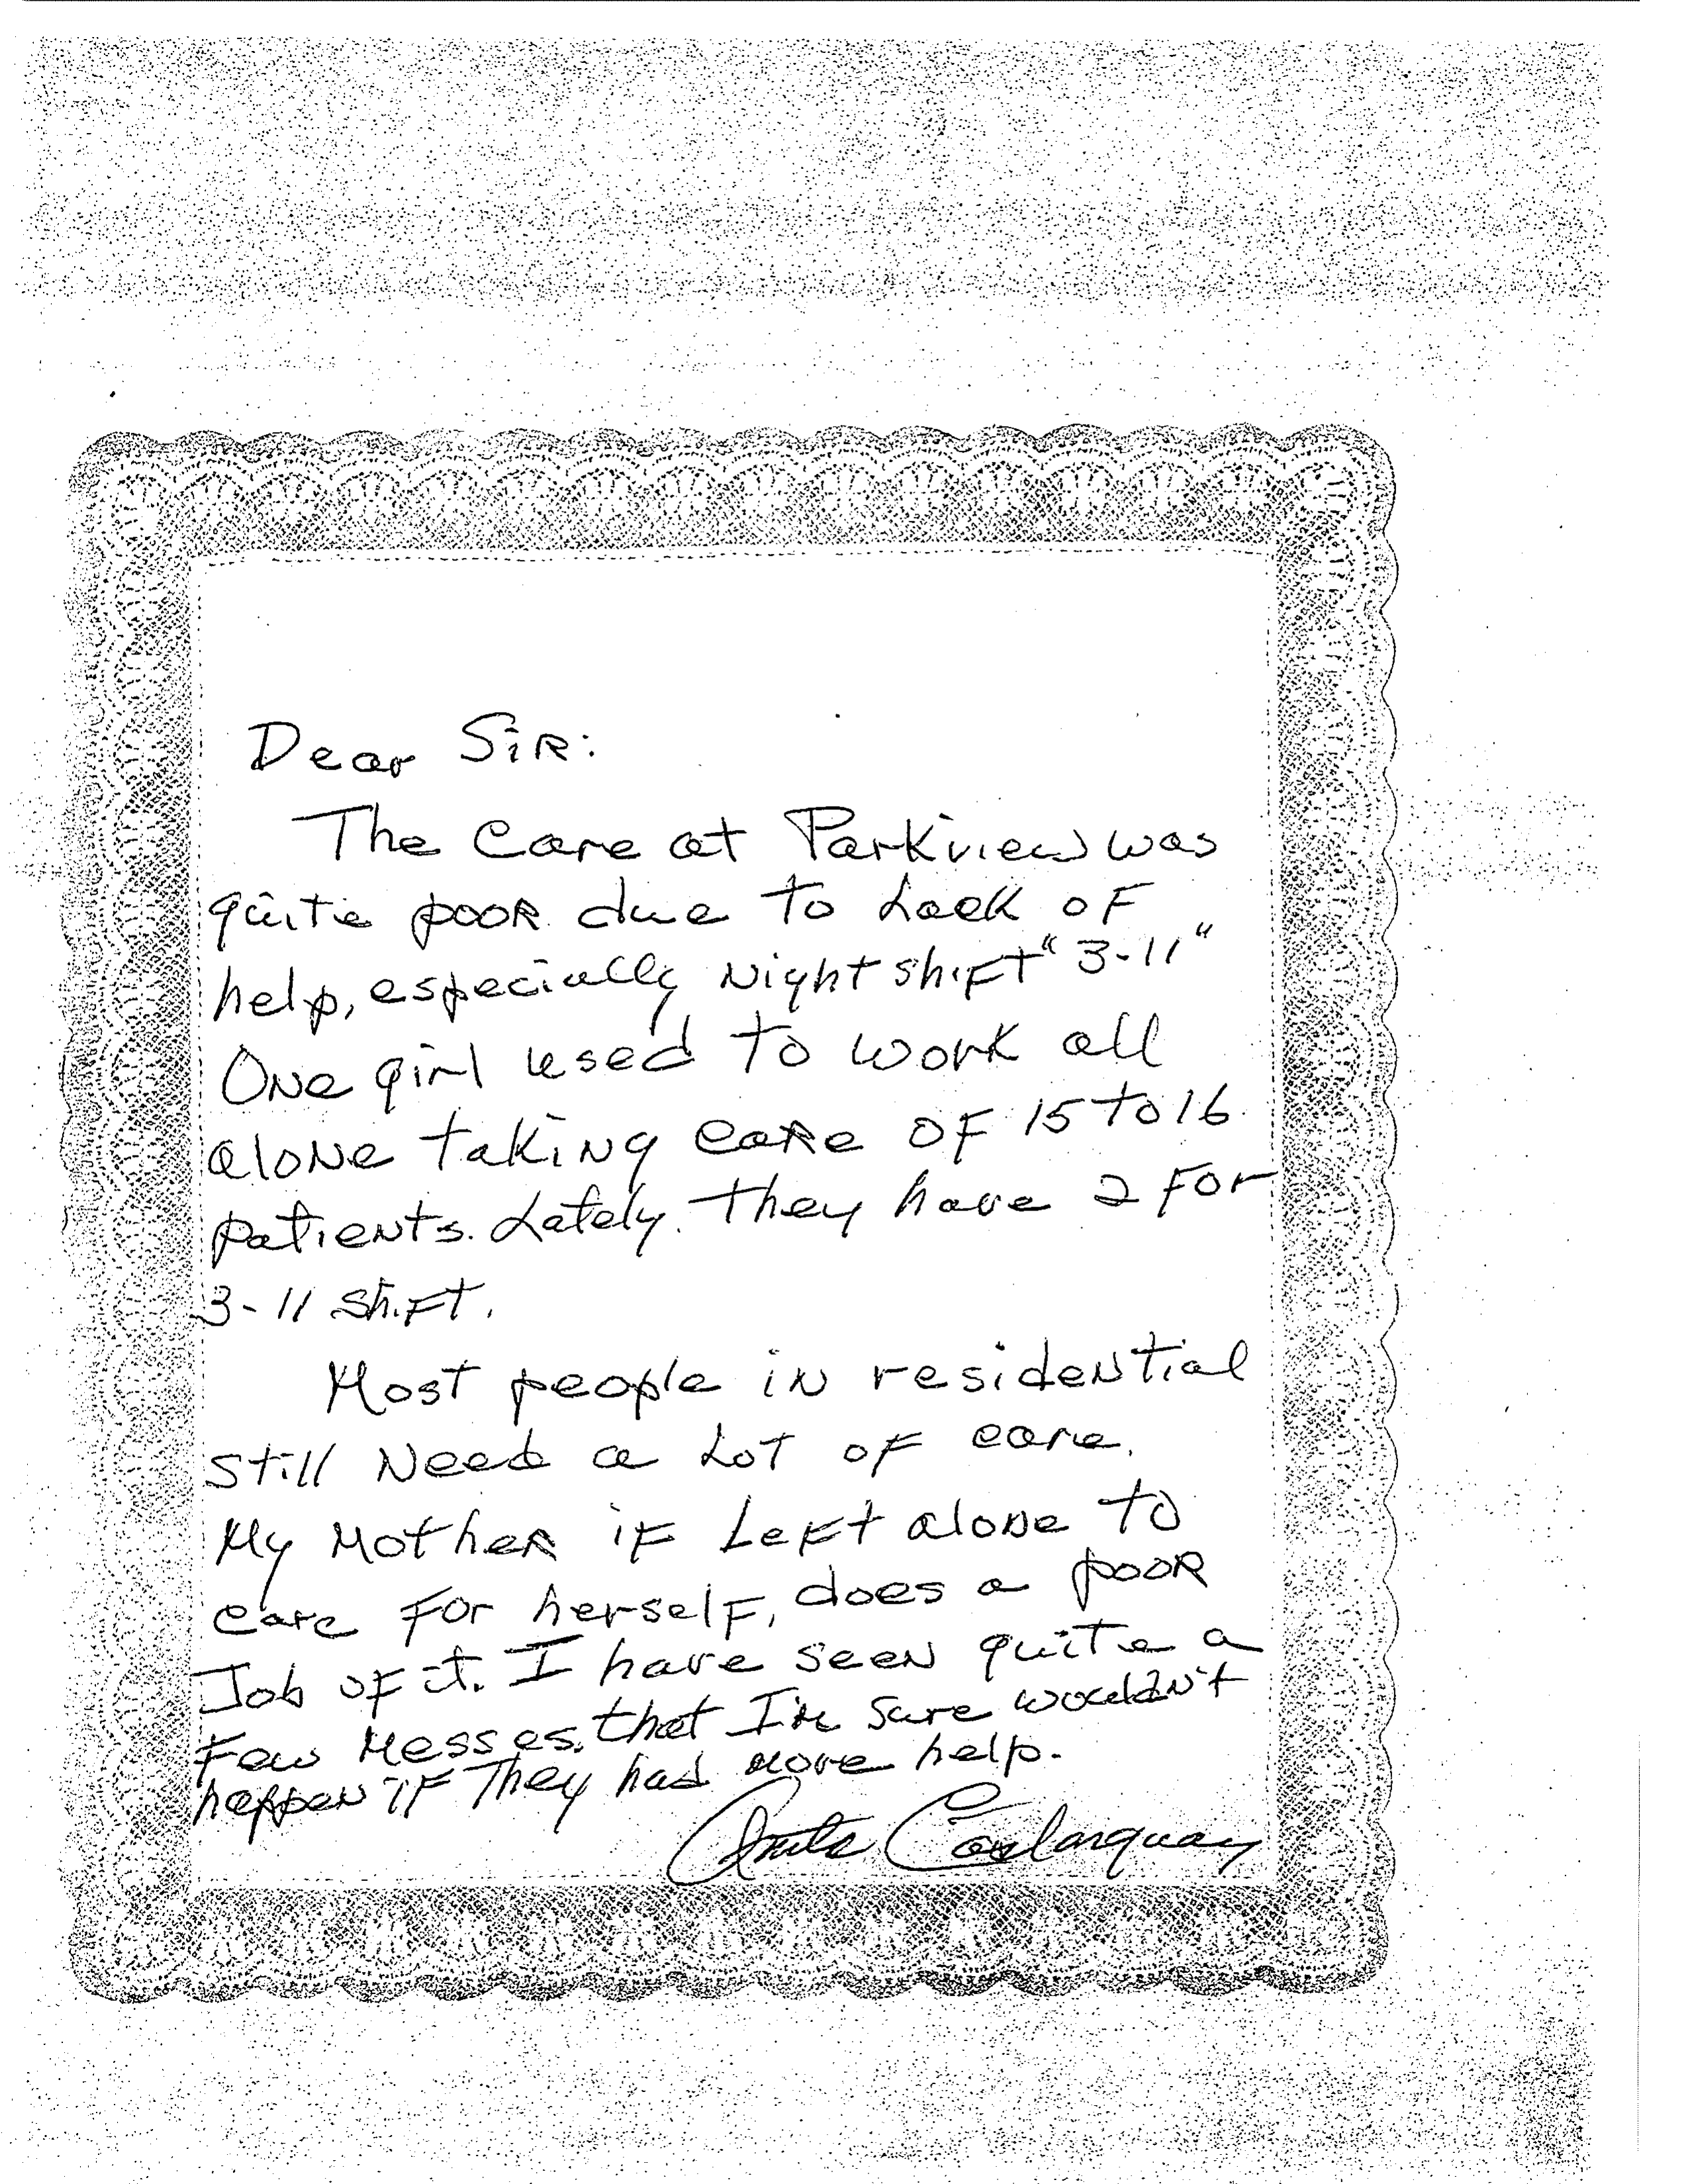 Dear Sir:
The Care at Parkview was
quite poor due to Lack of
help, especially Night shift "3-11"
One girl used to work all
alone taking care of 15 to 16
patients. Lately. They have 2 For
3-11 shift.
Most people in residential
still Need a Lot of care.
My Mother if Left alone to
care For herself, does a poor
Job of it. I have seen quite a
Few Messes. that I'm sure wouldn't
happen if They had more help.
Anita